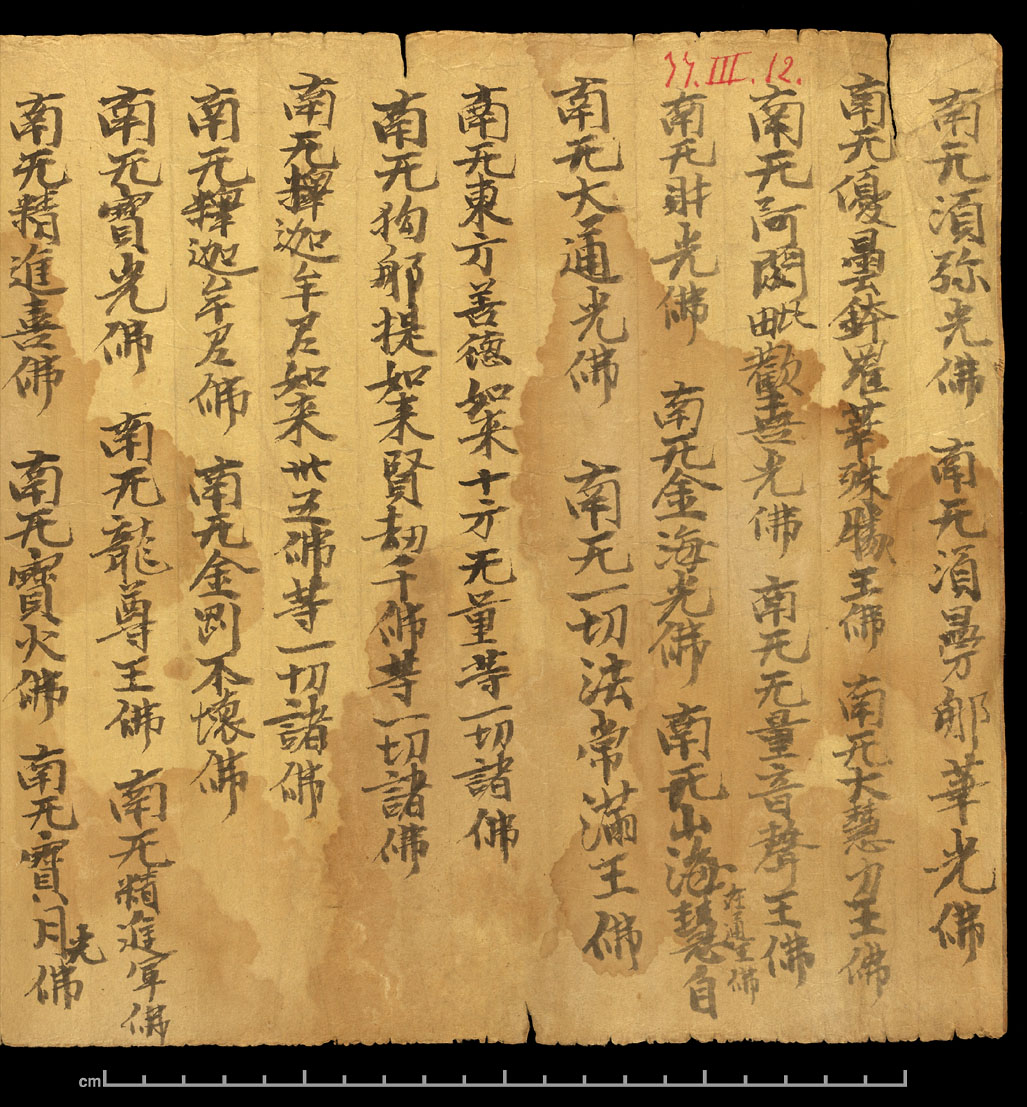 77.III.12.
南无須弥光佛 南无須曼那華光佛
南无優曇鉢羅華殊勝王佛 南无大慧力王佛
南无阿閦毗歡喜光佛 南无无量音聲王佛
南无財光佛 南无金海光佛 南无山海慧自
在通王佛
南无大通光佛 南无一切法常滿王佛
南无東方善德如来十方无量等一切諸佛
南无狗那提如来賢劫千佛等一切諸佛
南无釋迦牟尼如来卅五佛等一切諸佛
南无釋迦牟尼佛 南无金剛不懷佛
南无寶光佛 南无龍尊王佛 南无精進軍佛
南无精進喜佛 南无寶火佛 南无寶月光佛
cm